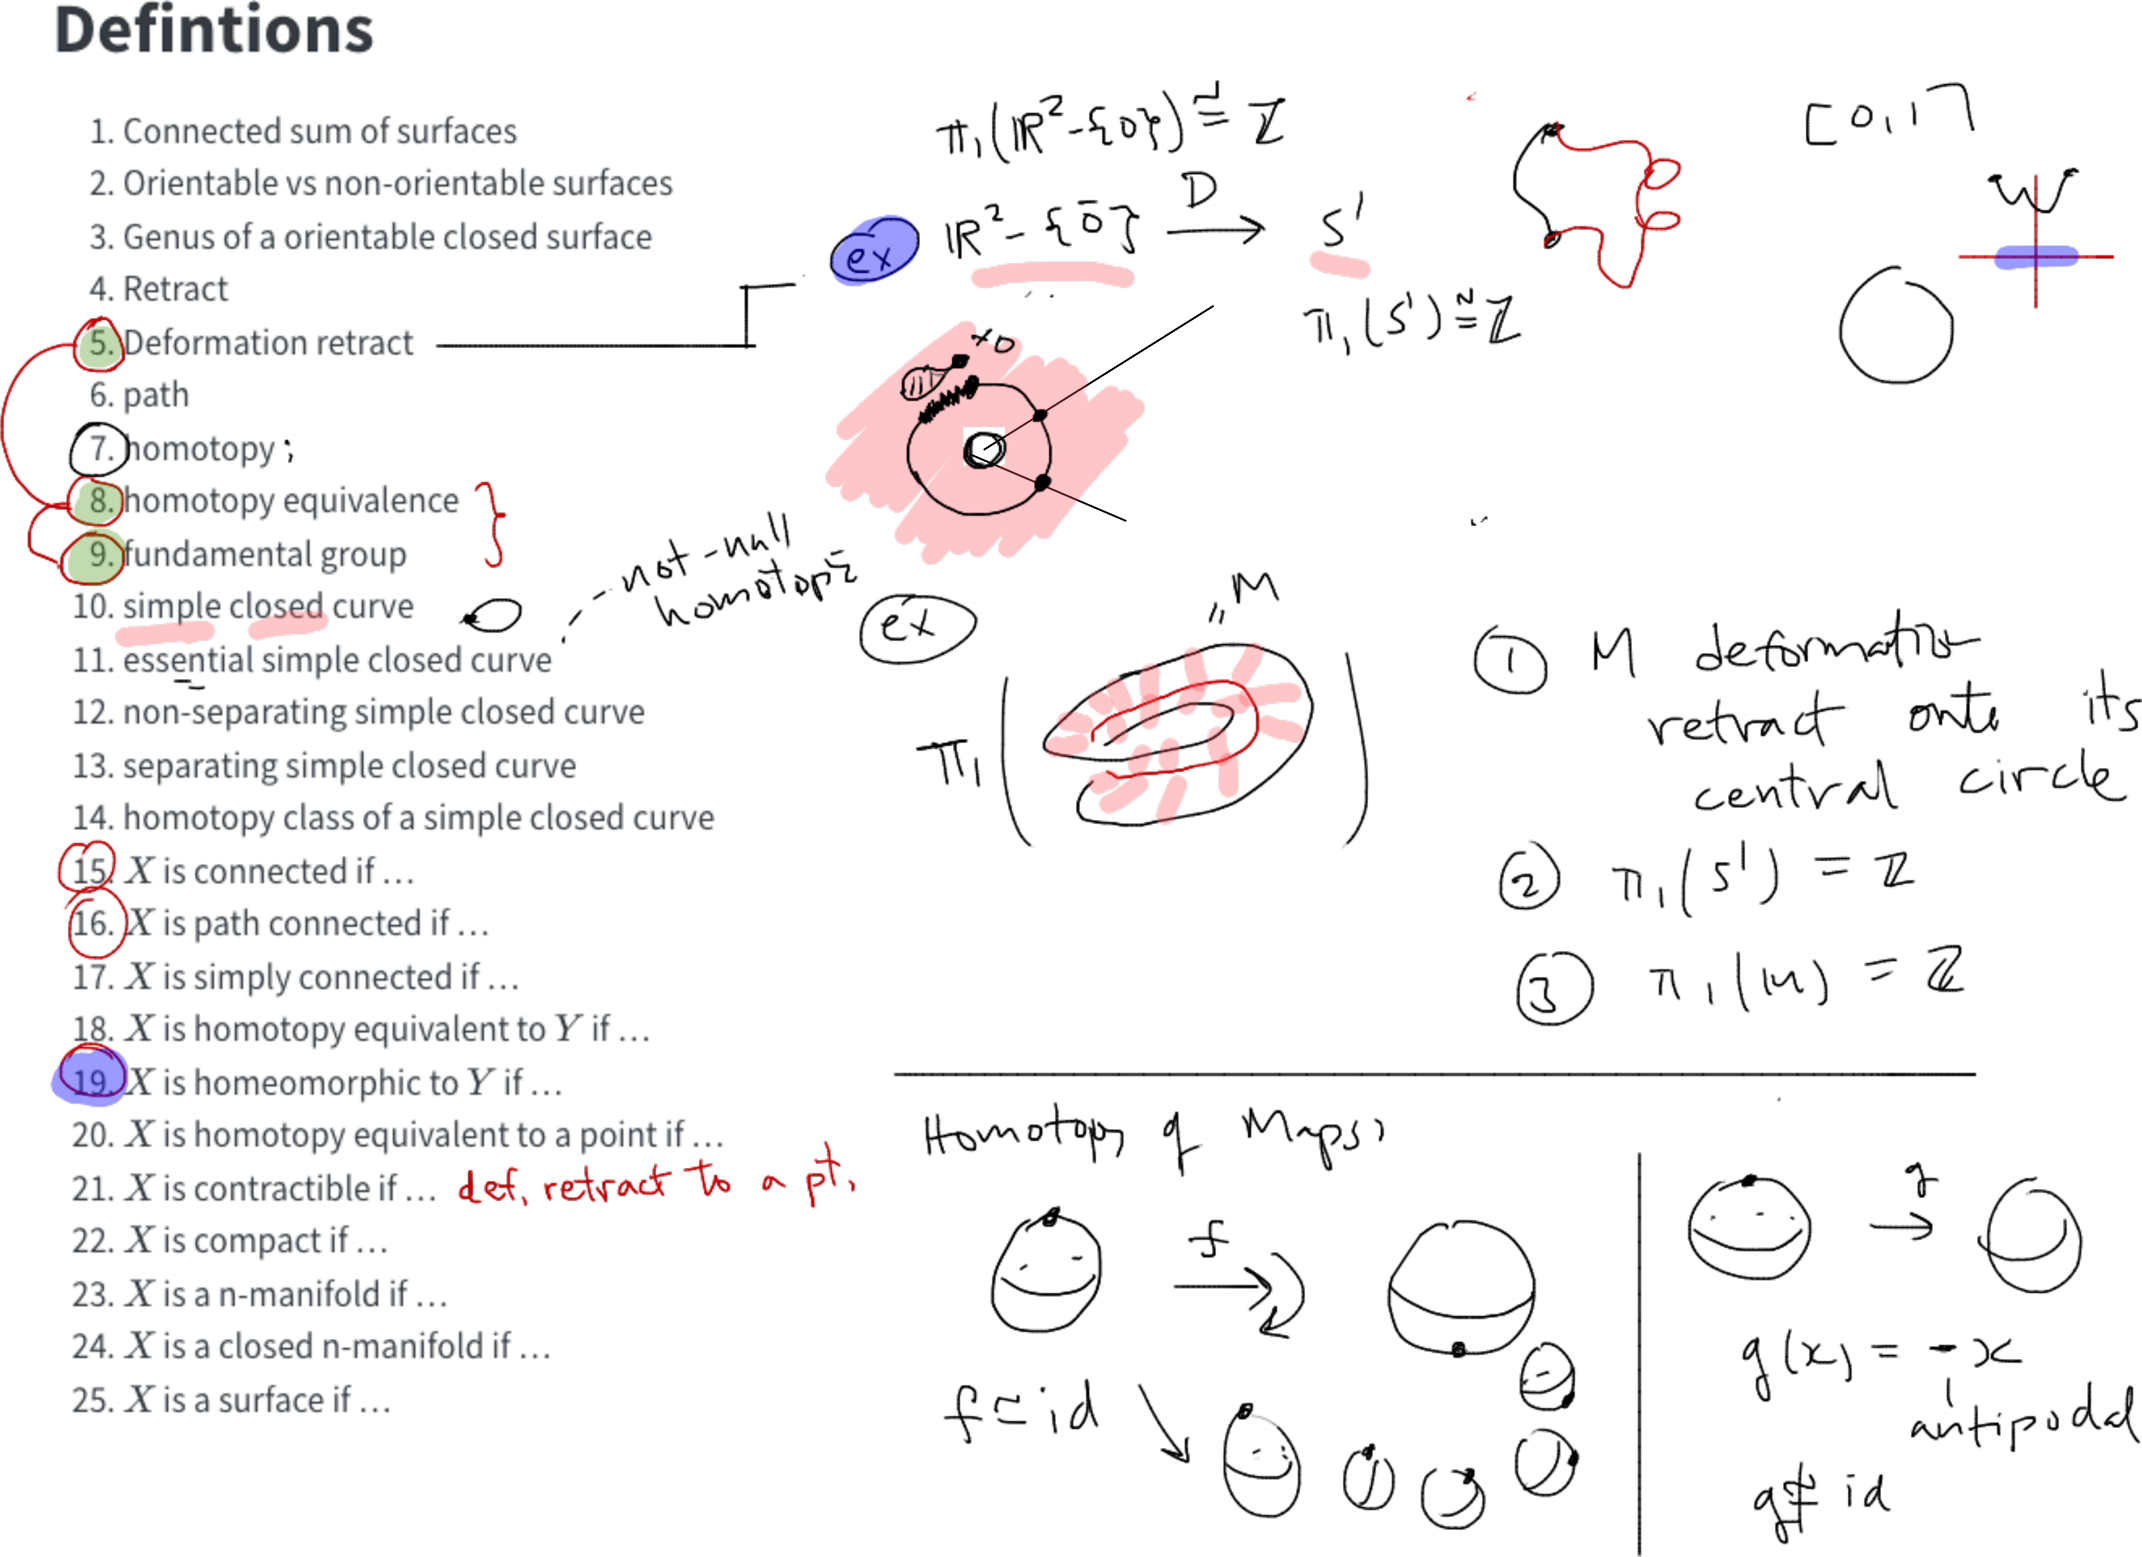 Defintions
1. Connected sum of surfaces
2. Orientable vs non-orientable surfaces
3. Genus of a orientable closed surface
4. Retract
5. Deformation retract
6. path
7. homotopy ;
8. homotopy equivalence
9. fundamental group
10. simple closed curve
11. essential simple closed curve
not-null
12. non-separating simple closed curve
13. separating simple closed curve
14. homotopy class of a simple closed curve
15. X is connected if …
16. X is path connected if …
17. X is simply connected if …
18. X is homotopy equivalent to Y if …
19. X is homeomorphic to Y if …
20. X is homotopy equivalent to a point if …
21. X is contractible if … def. retract to a pt.
22. X is compact if …
23. X is a n-manifold if …
24. X is a closed n-manifold if …
25. X is a surface if …
π₁(ℝ²-{0}) ≅ ℤ
ex ℝ²-{0} D → S¹
π₁(S¹) ≅ ℤ
x0
[0,1]
ex
"M
π₁( )
① M deformation
retract onto its
central circle
② π₁(S¹) = ℤ
③ π₁(M) = ℤ
Homotopy of Maps:
f
f ≃ id
g
g(x) = -x
antipodal
g ≄ id